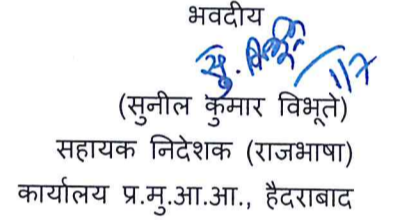 भवदीय
सु. विभूते 1/7
(सुनील कुमार विभूते)
सहायक निदेशक (राजभाषा)
कार्यालय प्र.मु.आ.आ., हैदराबाद